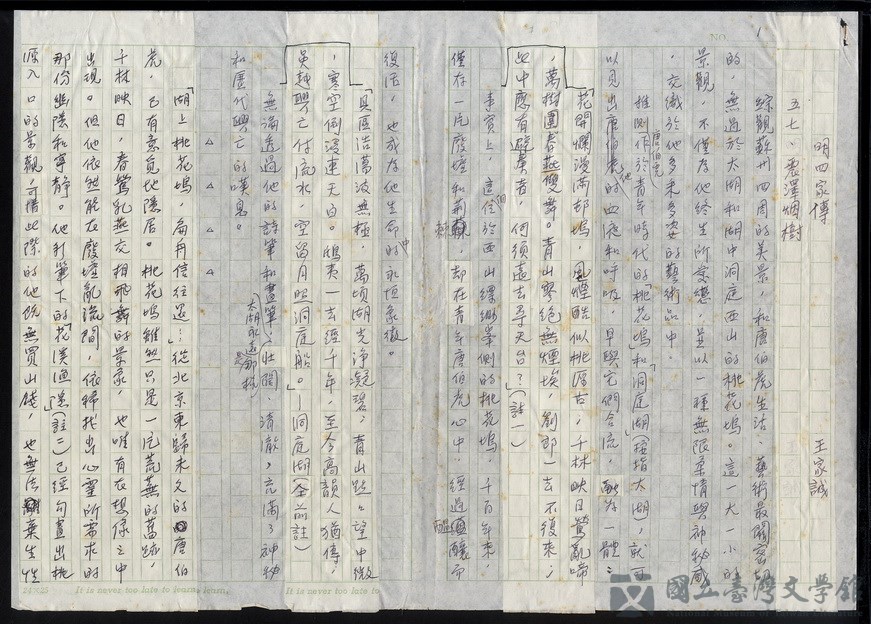 NO. 1
明四家傳 王家誠
五七、震澤烟樹
綜觀蘇州四周的美景,和唐伯虎生活、藝術最關密切
的,無過於太湖和湖中洞庭西山的桃花塢。這一大一小的
景觀,不僅為他終生所愛戀,並以一種無限柔情與神秘感
,交織於他多采多姿的藝術品中。
推測作於青年時代的「桃花塢」和「洞庭湖」(實指太湖),就可
唐伯虎
以見出唐伯虎的四肢和呼吸,早與它們合流,融為一體:
他
「花開爛漫滿邨塢,風煙酷似桃源古,千林映日鶯亂啼
,萬樹圍春燕雙舞。青山寥絕無煙埃,劉郎一去不復來;
此中應有避秦者,何須遠去尋天台?(註一)
事實上,這位於西山縹緲峯側的桃花塢,千百年來,
個
僅存一片廢墟和荊棘,却在青年唐伯虎心中,經過醞釀而
復活,也成為他生命中的永恒象徵。
「具區浩蕩波無極,萬頃湖光淨凝碧;青山點點望中微
,寒空倒浸連天白。鴟夷一去經千年,至今高韻人猶傳,
吳越興亡付流水,空留月照洞庭船。」—洞庭湖(仝前註)
無論透過他的詩筆和畫筆,壯闊、清澈,充滿了神秘
太湖永遠是那樣
和歷代興亡的嘆息。
△ △ △ △
「湖上桃花塢,扁舟信往還;…從北京東歸未久的唐伯
虎,已有意覓地隱居。桃花塢雖然只是一片荒蕪的舊跡,
千林映日,春鶯乳燕交相飛舞的景象,也唯有在想像之中
出現。但他依然能在廢墟亂流間,依稀找出心靈所需求的
那份幽隱和寧靜。他到筆下的「花溪漁隱」(註二)已經勾畫出桃
源入口的景觀,可惜此際的他既無買山錢,也無法棄生性
24×25 It is never too late to learn.
It is never too late to
國立臺灣文學館